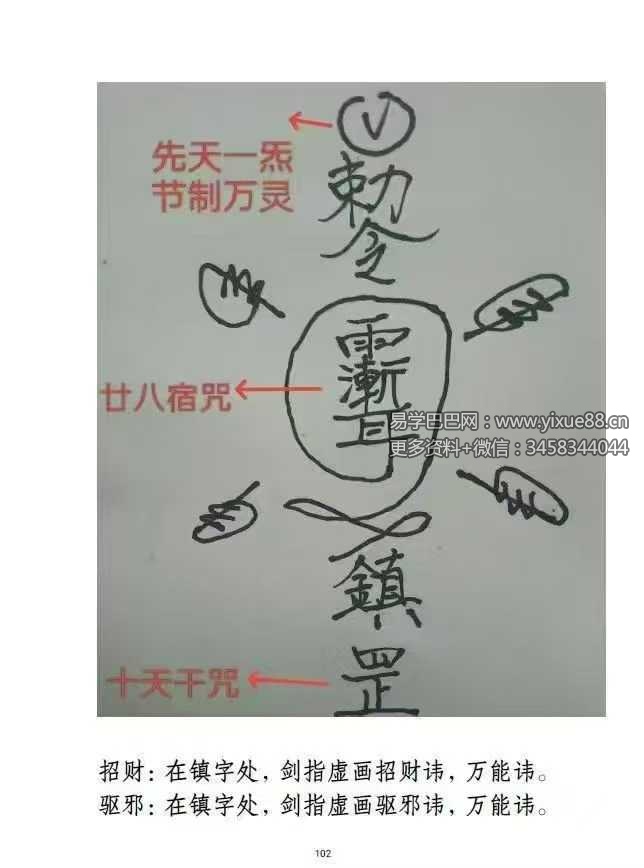 先天一炁
节制万灵
勅
令
廿八宿咒
易学巴巴网：www.yixue88.cn
更多资料+微信：3458344044
鎮
十天干咒
罡
招财：在镇字处，剑指虚画招财讳，万能讳。
驱邪：在镇字处，剑指虚画驱邪讳，万能讳。
102